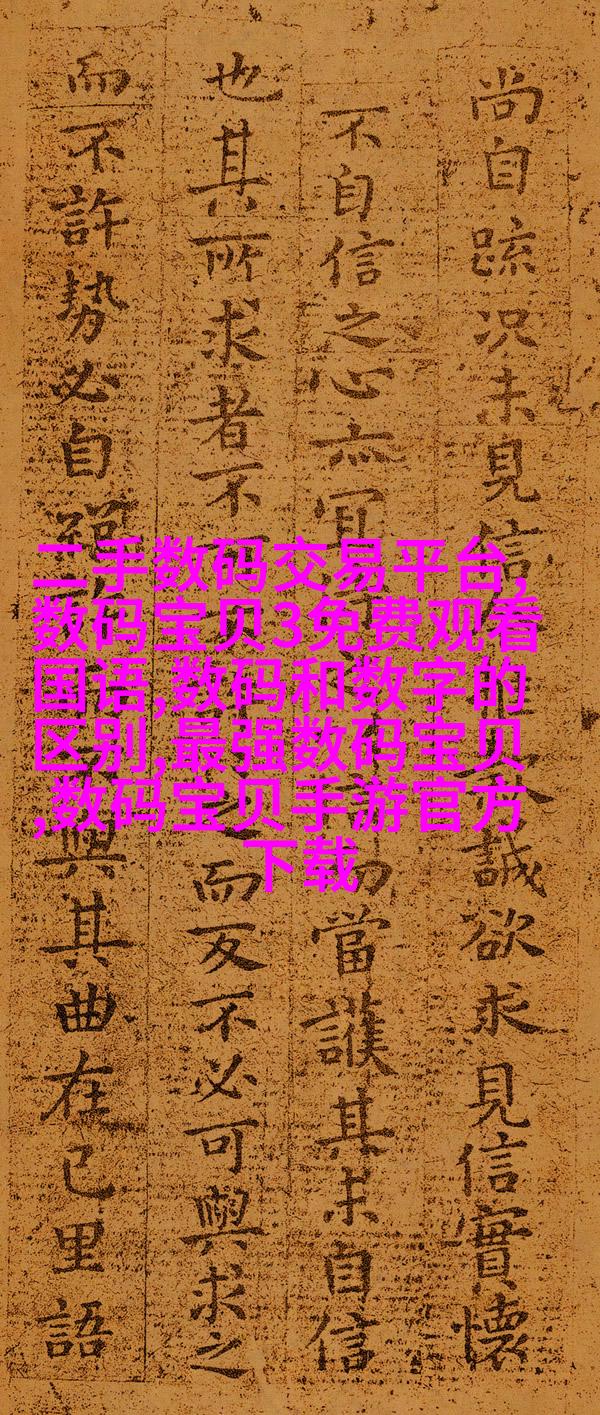 二手数码交易平台,
数码宝贝3免费观看
国语,数码和数字的
区别,最强数码宝贝
,数码宝贝手游官方
下载
尚自疏况未見信誠欲求見信實懷
不自信之心亦當護其未自信
也其所求者不而反不必可與求之
而不許勢必自與其曲在已里語